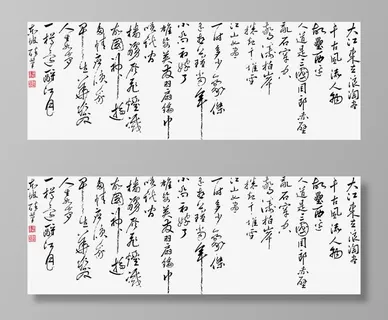 大江東去浪淘尽
千古風流人物
故壘西邊
人道是三國周郎赤壁
亂石穿空
驚濤拍岸
捲起千堆雪
江山如畫
一時多少豪傑
遙想公瑾當年
小喬初嫁了
雄姿英發羽扇綸巾
談笑間
檣櫓灰飛煙滅
故國神遊
多情應笑我
早生華髮
人生如夢
一樽還酹江月
大江東去浪淘尽
千古風流人物
故壘西邊
人道是三國周郎赤壁
亂石穿空
驚濤拍岸
捲起千堆雪
江山如畫
一時多少豪傑
遙想公瑾當年
小喬初嫁了
雄姿英發羽扇綸巾
談笑間
檣櫓灰飛煙滅
故國神遊
多情應笑我
早生華髮
人生如夢
一樽還酹江月